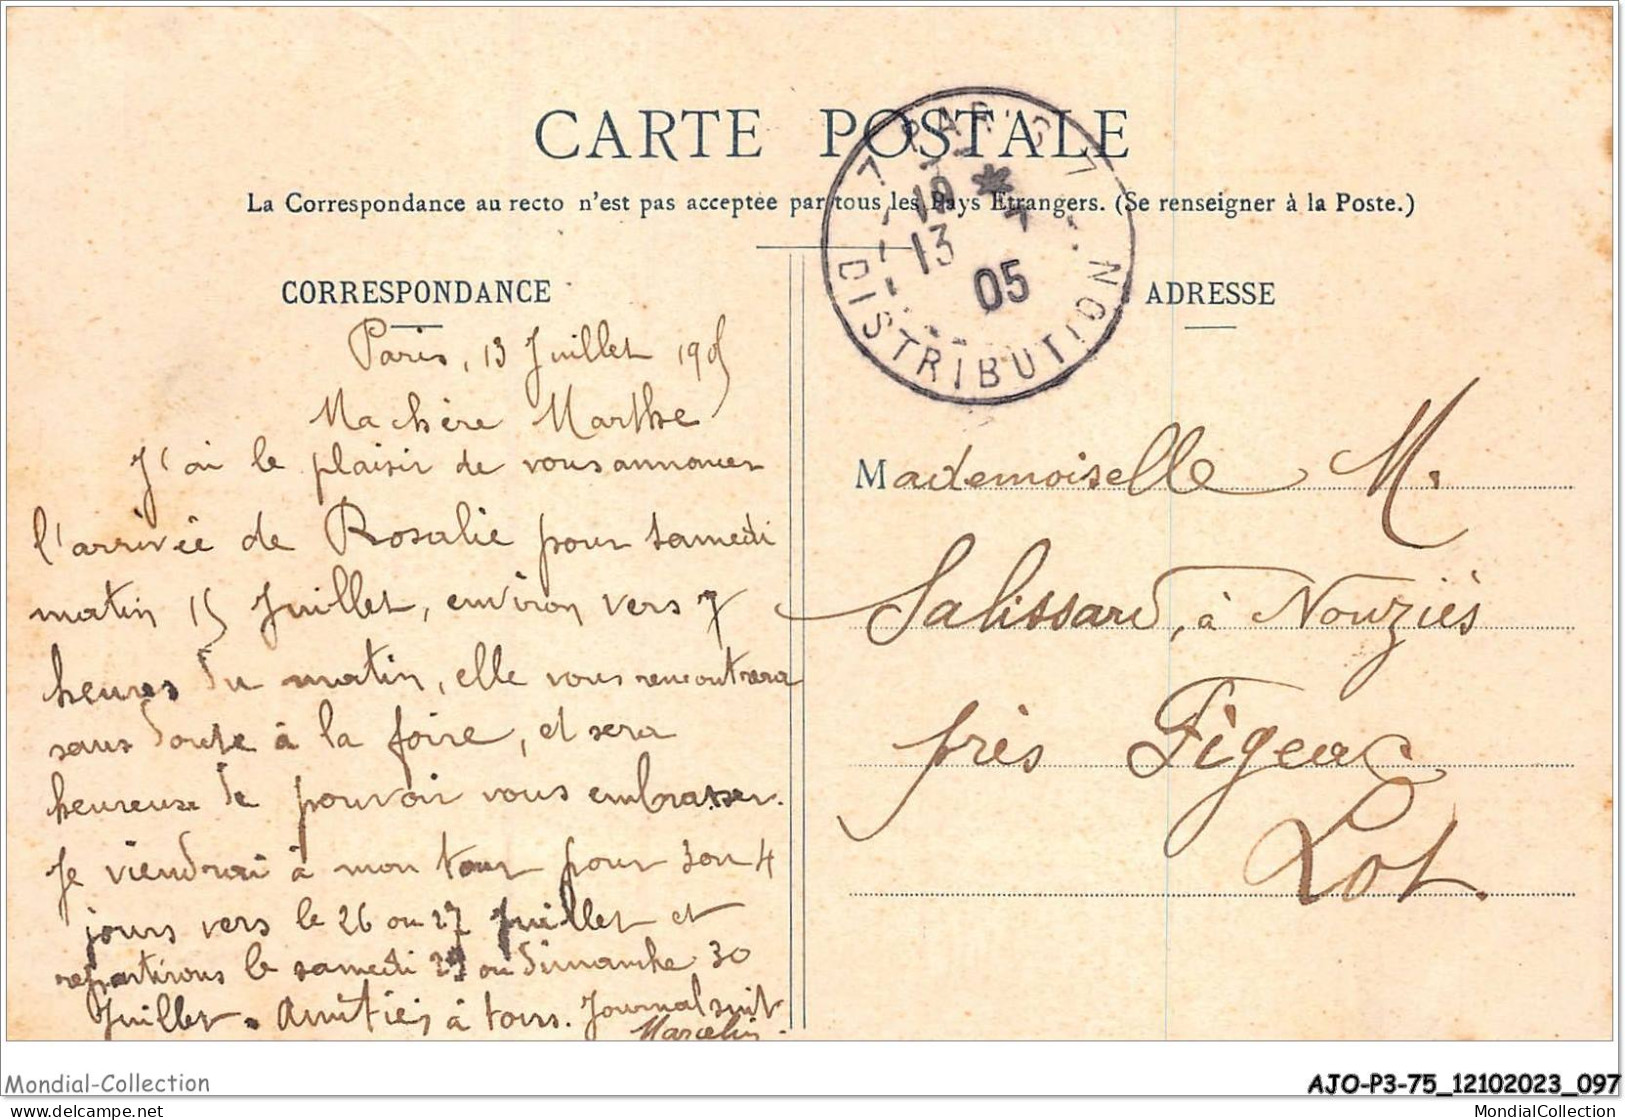 CARTE POSTALE
La Correspondance au recto n'est pas acceptée par tous les Pays Etrangers. (Se renseigner à la Poste.)
CORRESPONDANCE
Paris, 13 Juillet 1905
Ma chère Marthe
J'ai le plaisir de vous annoncer
l'arrivée de Rosalie pour samedi
matin 15 Juillet, environ vers 7
heures du matin, elle vous rencontrera
sans doute à la foire, et sera
heureuse de pouvoir vous embrasser.
Je viendrai à mon tour pour 3 ou 4
jours vers le 26 ou 27 juillet et
repartirons le samedi 29 ou dimanche 30
Juillet. Amitiés à tous. Journal suit
Marcelin
7 PARIS 7
19 *
13 7
05
DISTRIBUTION
ADRESSE
Mademoiselle M.
Salissard, à Nouziès
près Figeac
Lot.
Mondial-Collection
AJO-P3-75_12102023_097
www.delcampe.net
MondialCollection